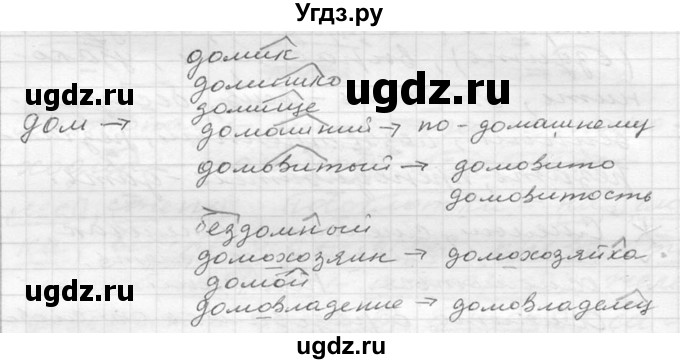 Угдз.ру
домик
домишко
домище
дом → домашний → по-домашнему
домовитый → домовито
домовитость
бездомный
домохозяин → домохозяйка
домой
домовладение → домовладелец
ugdz.ru
ugdz.ru
ugdz.ru
ugdz.ru
ugdz.ru
ugdz.ru